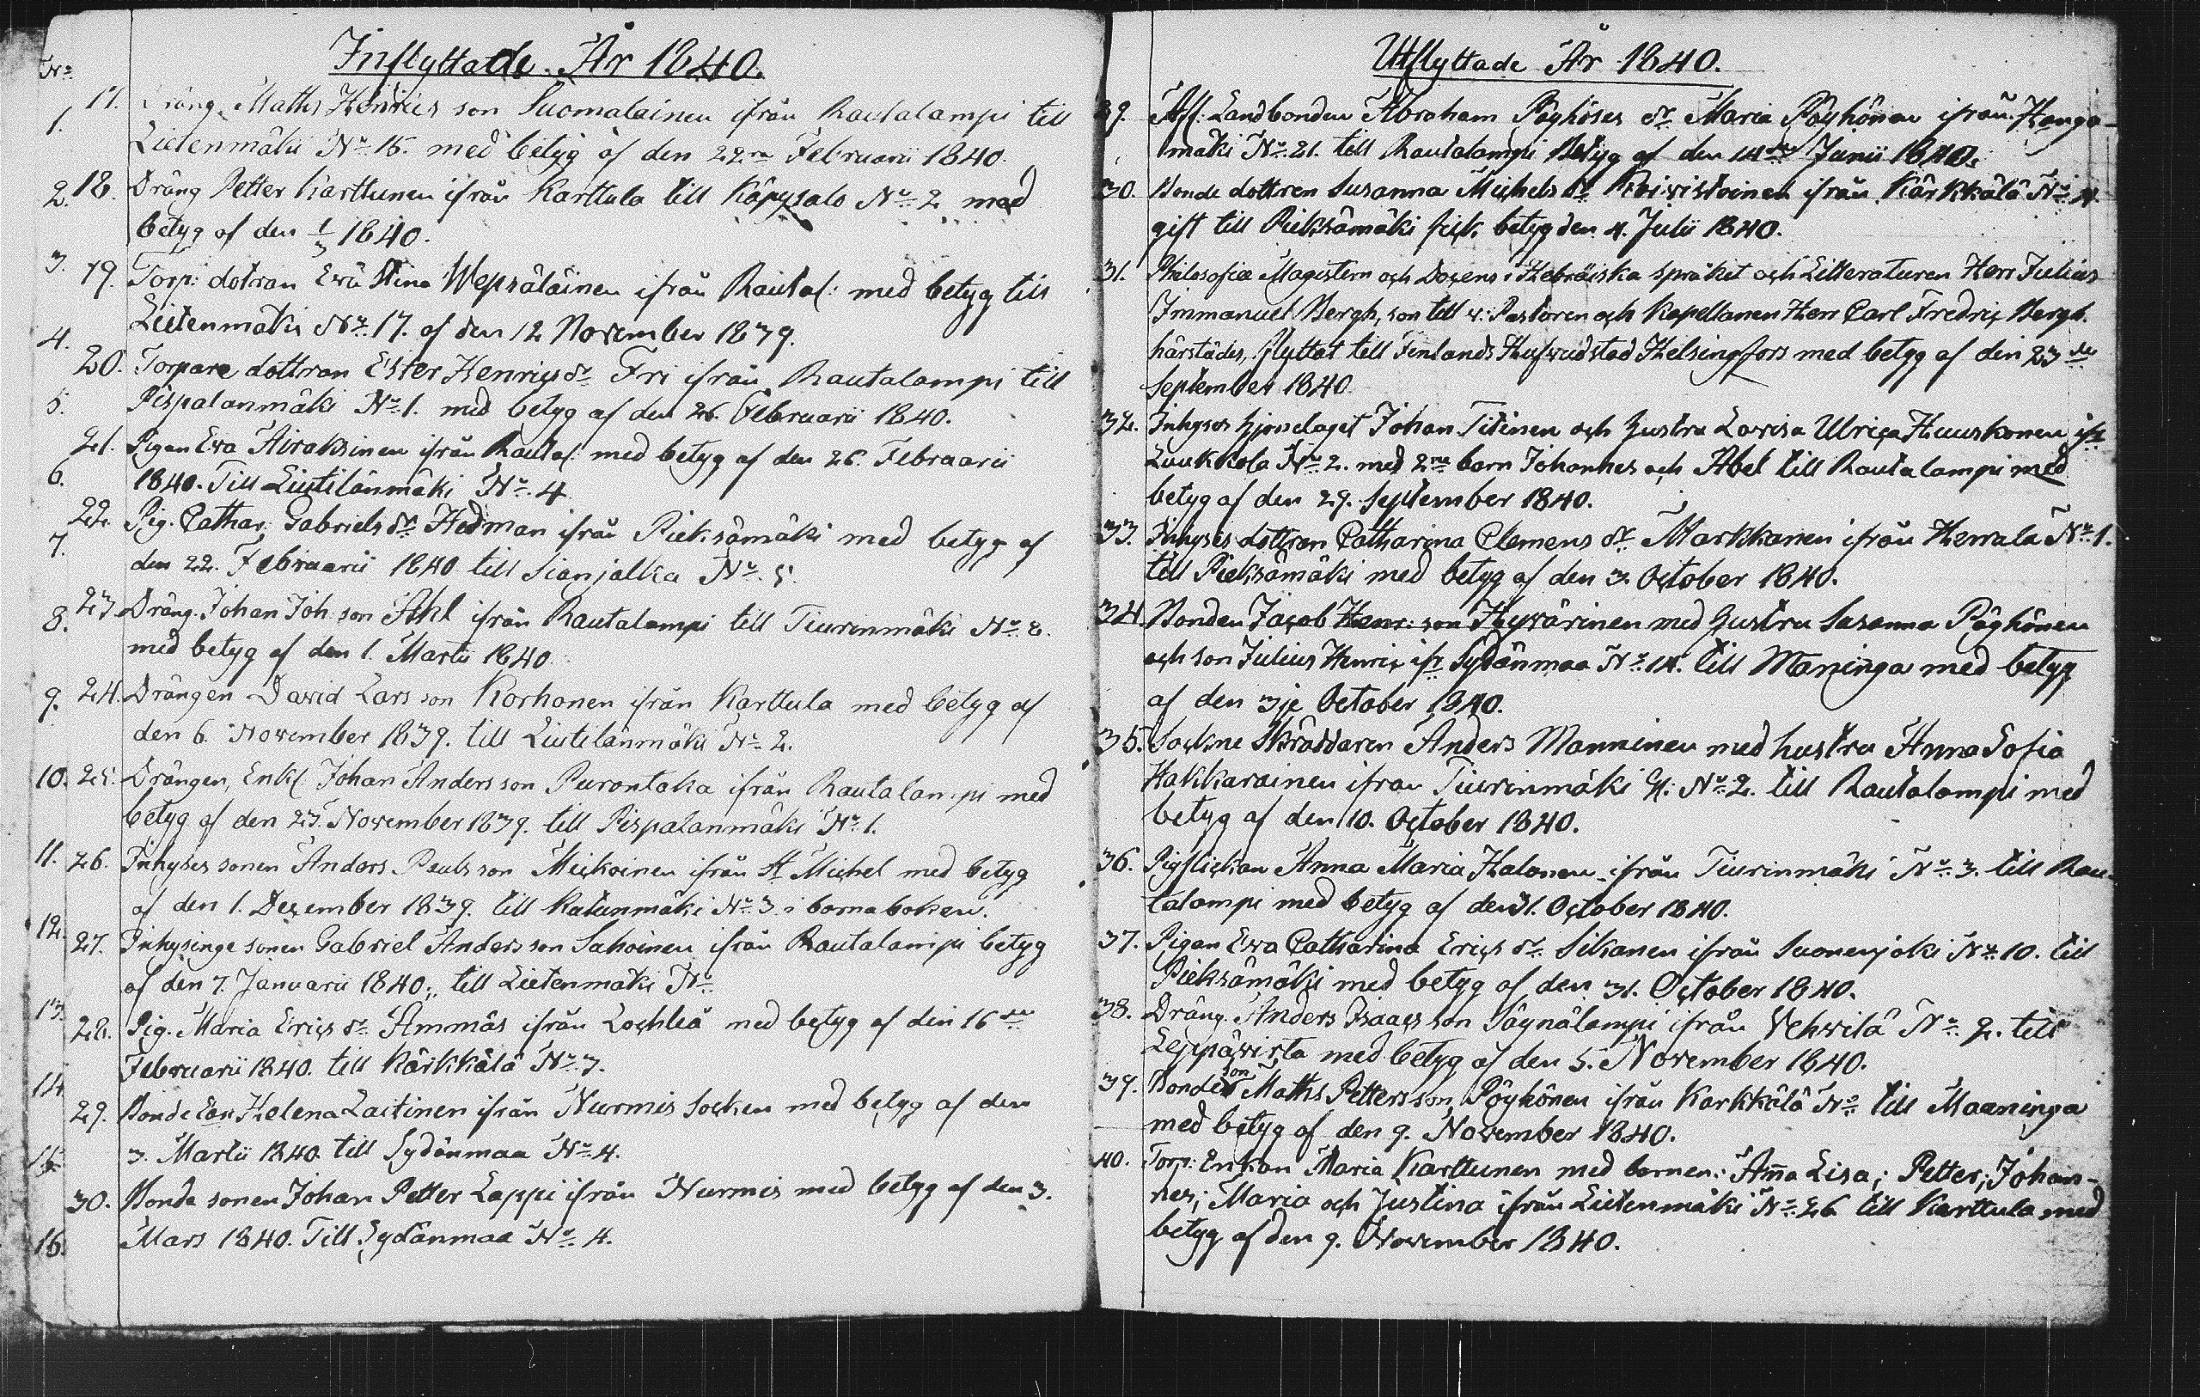 Inflyttade År 1840.
No
1. 17. Dräng Maths Henrics son Suomalainen ifrån Rautalampi till
Lietenmäki No 15. med betyg af den 22ra Februarii 1840.
2. 18. Dräng Petter Karttunen ifrån Karttula till Käpysalo No 2 med
betyg af den 1/3 1840.
3. 19. Torp: dotran Eva Stina Wepsäläinen ifrån Rautal: med betyg till
Lietenmäki No 17. af den 12 November 1839.
4. 20. Torpare dottran Ester Henrics dr Fri ifrån Rautalampi till
5. Pispalanmäki No 1. med betyg af den 26. Februarii 1840.
21. Pigan Eva Airaksinen ifrån Rautal: med betyg af den 26. Februarii
6. 1840. Till Liistilänmäki No 4
22. Pig. Cathar: Gabriels dr Hedman ifrån Pieksämäki med betyg af
7. den 22. Februarii 1840 till Sianjalka No 5.
8. 23. Dräng. Johan Joh. son Ahl ifrån Rautalampi till Tiurinmäki No 8.
med betyg af den 1. Martii 1840.
9. 24. Drängen David Lars son Korhonen ifrån Karttula med betyg af
den 6. November 1839. till Liistilänmäki No 2.
10. 25. Drängen, Enkl. Johan Anders son Purontaka ifrån Rautalampi med
betyg af den 25. November 1839. till Pispalanmäki No 1.
11. 26. Inhyses sonen Anders Pauls son Mickoinen ifrån St Michel med betyg
af den 1. December 1839. till Katunmäki No 3 i barnaboken.
12. 27. Inhysinge sonen Gabriel Anders son Sahoinen ifrån Rautalampi betyg
af den 7. Januarii 1840., till Lietenmäki No
13. 28. Pig. Maria Erics dr Ammäs ifrån Lochteå med betyg af den 16de
Februarii 1840. till Kärkkälä No 7.
14 29. Bonde Enk. Helena Laitinen ifrån Nurmis Socken med betyg af den
15 3. Martii 1840. till Sydänmaa No 4.
30. Bonda sonen Johan Petter Lappi ifrån Nurmis med betyg af den 3.
16. Mars 1840. Till Sydänmaa No 4.
Utflyttade År 1840.
29. Afsk: Landbonden Abraham Pöyhöses dr Maria Pöyhönen ifrån Hanga-
mäki No 21. till Rautalampi Betyg af den 14de Junii 1840.
30. Bonde dottren Susanna Michels dr Koivistoinen ifrån Kärkkälä No 4.
gift till Pieksämäki fick betyg den 4. Julii 1840.
31. Philosofiæ Magistern och Docens i Hebräiska språket och Litteraturen Herr Julius
Immanuel Bergh, son till v: Pastoren och Kapellanen Herr Carl Fredric Bergh
härstädes, flyttat till Finlands Hufvudstad Helsingfors med betyg af den 23de
September 1840
32. Inhyses hjonelaget Johan Titinen och hustru Lovisa Ulrica Huuskonen ifr
Luukkola No 2. med 2ne barn Johannes och Abel till Rautalampi med
betyg af den 29. September 1840.
33. Inhyses dottren Catharina Clemens dr Markkanen ifrån Herrala No 1.
till Pieksämäki med betyg af den 3. October 1840.
34. Bonden Jacob Henr: son Hyvärinen med hustru Susanna Pöyhönen
och son Julius Henric ifr Sydänmaa No 14. till Maninga med betyg
af den 3je October 1840.
35. Sockne Skräddaren Anders Manninen med hustru Anna Sofia
Hakkarainen ifrån Tiurinmäki No 2. till Rautalampi med
betyg af den 10. October 1840.
36. Pigflickan Anna Maria Halonen ifrån Tiurinmäki No 3. till Rau-
talampi med betyg af den 31. October 1840.
37. Pigan Eva Catharina Erics dr Sikanen ifrån Suonenjoki No 10. till
Pieksämäki med betyg af den 31. October 1840.
38. Dräng. Anders Isaacs son Säynälampi ifrån Vehvilä No 2. till
Leppävirta med betyg af den 5. November 1840.
39. Bonde son Maths Petters son Pöyhönen ifrån Karkkälä No till Maaninga
med betyg af den 9. November 1840.
40. Torp: Enkan Maria Karttunen med barnen: Anna Lisa; Petter; Johan-
nes; Maria och Justina ifrån Lietenmäki No 26 till Karttula med
betyg af den 9. November 1840.